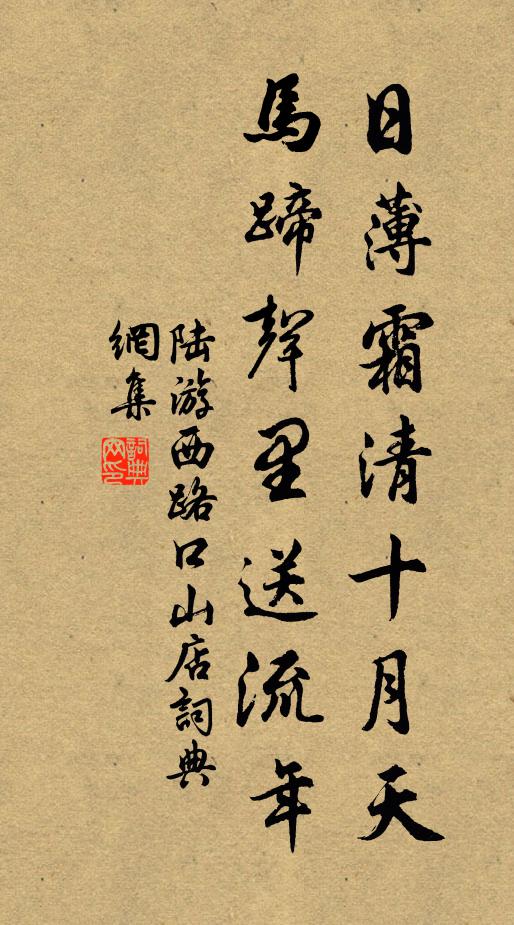 日薄霜清十月天
馬蹄聲里送流年
陆游西路口山店詞典
網集
詞典
网印